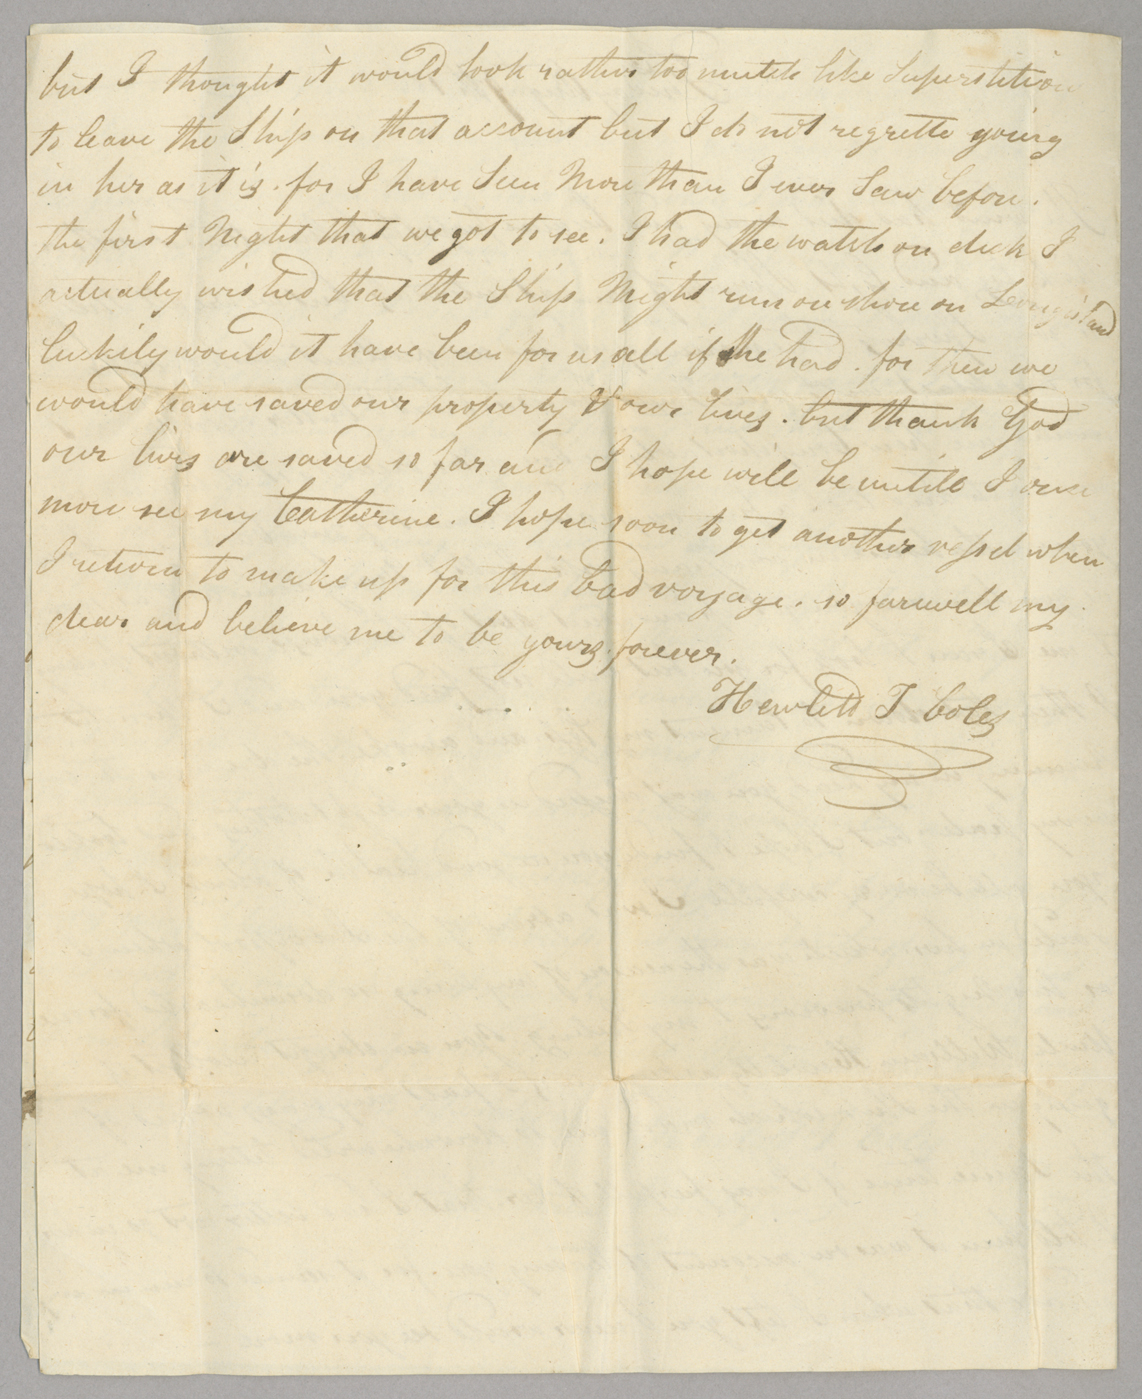 but I thought it would look rather too mutch like Superstition
to leave the Ship on that account but I do not regrette going
in her as it is. for I have Seen More than I ever Saw before.
the first Night that we got to see. I had the watch on deck I
actually wished that the Ship Might run on shore on Long island
luckily would it have been for us all if she had. for then we
would have saved our property & our lives. but thank God
our lives are saved so far and I hope will be untill I once
more see my Catherine. I hope soon to get another vessel when
I return to make up for this bad voyage. so farewell my
dear and believe me to be yours forever.
Hewlett T Coles